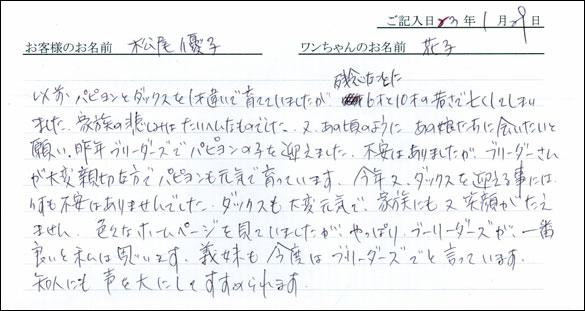 ご記入日 23年 1月 29日
お客様のお名前 松尾優子 ワンちゃんのお名前 花子
残念なことに
以前、パピヨンとダックスを1才違いで育てていましたが 6才と10才の若さで亡くしてしまい
ました。家族の悲しみはたいへんなものでした。又、あの頃のように あの娘たちに会いたいと
願い、昨年ブリーダーズでパピヨンの子を迎えました。不安はありましたが、ブリーダーさん
が大変親切な方でパピヨンも元気で育っています。今年又、ダックスを迎える事には
何も不安はありませんでした。ダックスも大変元気で、家族にも又笑顔がたえ
ません。色々なホームページを見ていましたが、やっぱり、ブリーダーズが、一番
良いと私は思います。義妹も今度はブリーダーズでと言っています。
知人にも声を大にしてすすめられます。